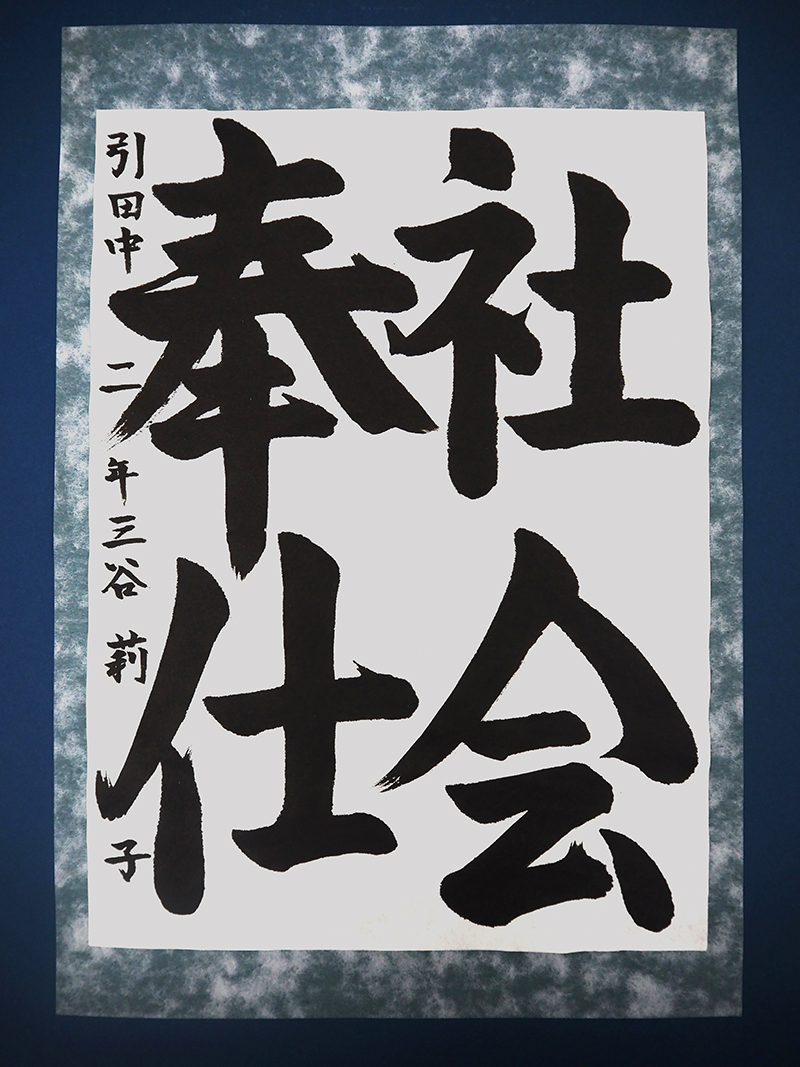 社会
奉仕
引田中二年三谷莉子